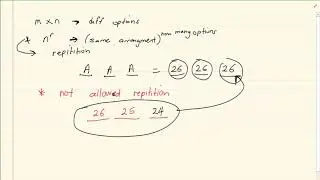 m x n → diff options
* n^r → (same arrangment)^how many options
→ repitition
A A A = 26 26 26
* not allowed repitition
26 25 24